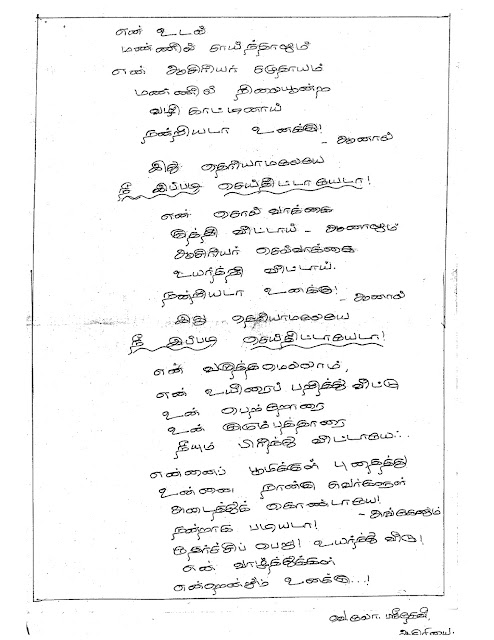 என் உடல்
மண்ணில் சாய்ந்தாலும்
என் ஆசிரியர் சமுதாயம்
மண்ணில் நிலையூன்ற
வழி காட்டினாய்
நன்றியடா உனக்கு!
- ஆனால்
இது தெரியாமலேயே
நீ இப்படி செய்திட்டாயேடா!
என் சொல் வாக்கை
குத்தி விட்டாய் - ஆனாலும்
ஆசிரியர் செல்வாக்கை
உயர்த்தி விட்டாய்.
நன்றியடா உனக்கு!
- ஆனால்
இது தெரியாமலேயே
நீ இப்படி செய்திட்டாயேடா!
என் வருத்தமெல்லாம்,
என் உயிரைப் பறித்து விட்டு
உன் பெற்றோரை
உன் குடும்பத்தாரை
நீயும் பிரித்து விட்டாயே..
என்னைப் பூமிக்குள் புதைத்து
உன்னை நான்கு சுவர்களுள்
அடைத்துக் கொண்டாயே!
- அங்கேனும்
நன்றாக படியடா!
முதிர்ச்சிப் பெறு! உயர்ந்து விடு!
என் வாழ்த்துக்கள்
என்றென்றும் உனக்கு...!
ஆசிரியை.